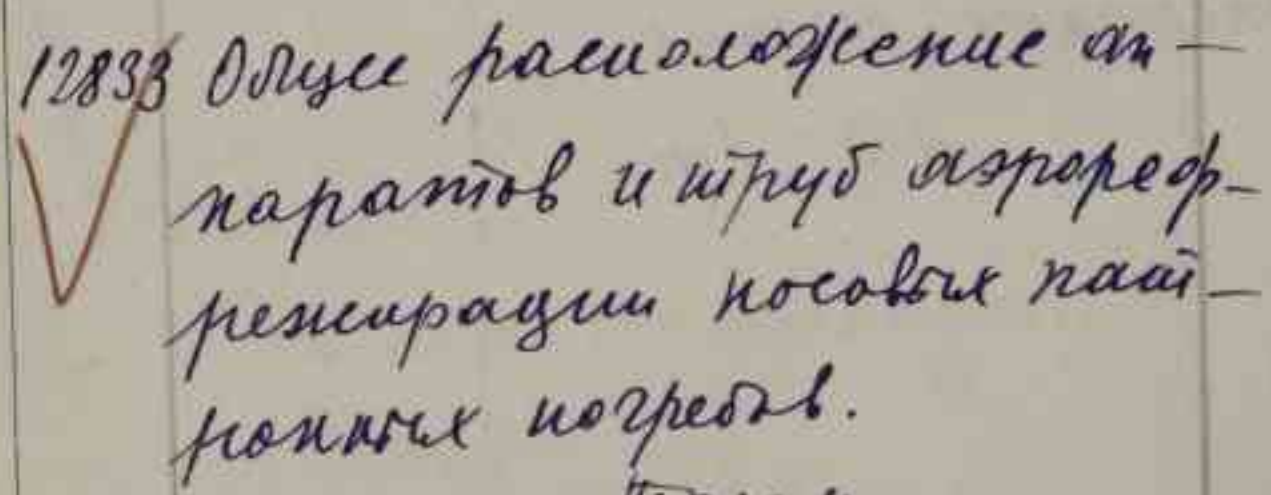 12833 Общее расположение ап-
паратов и труб аэрореф-
режирации носовых пат-
ронных погребов.